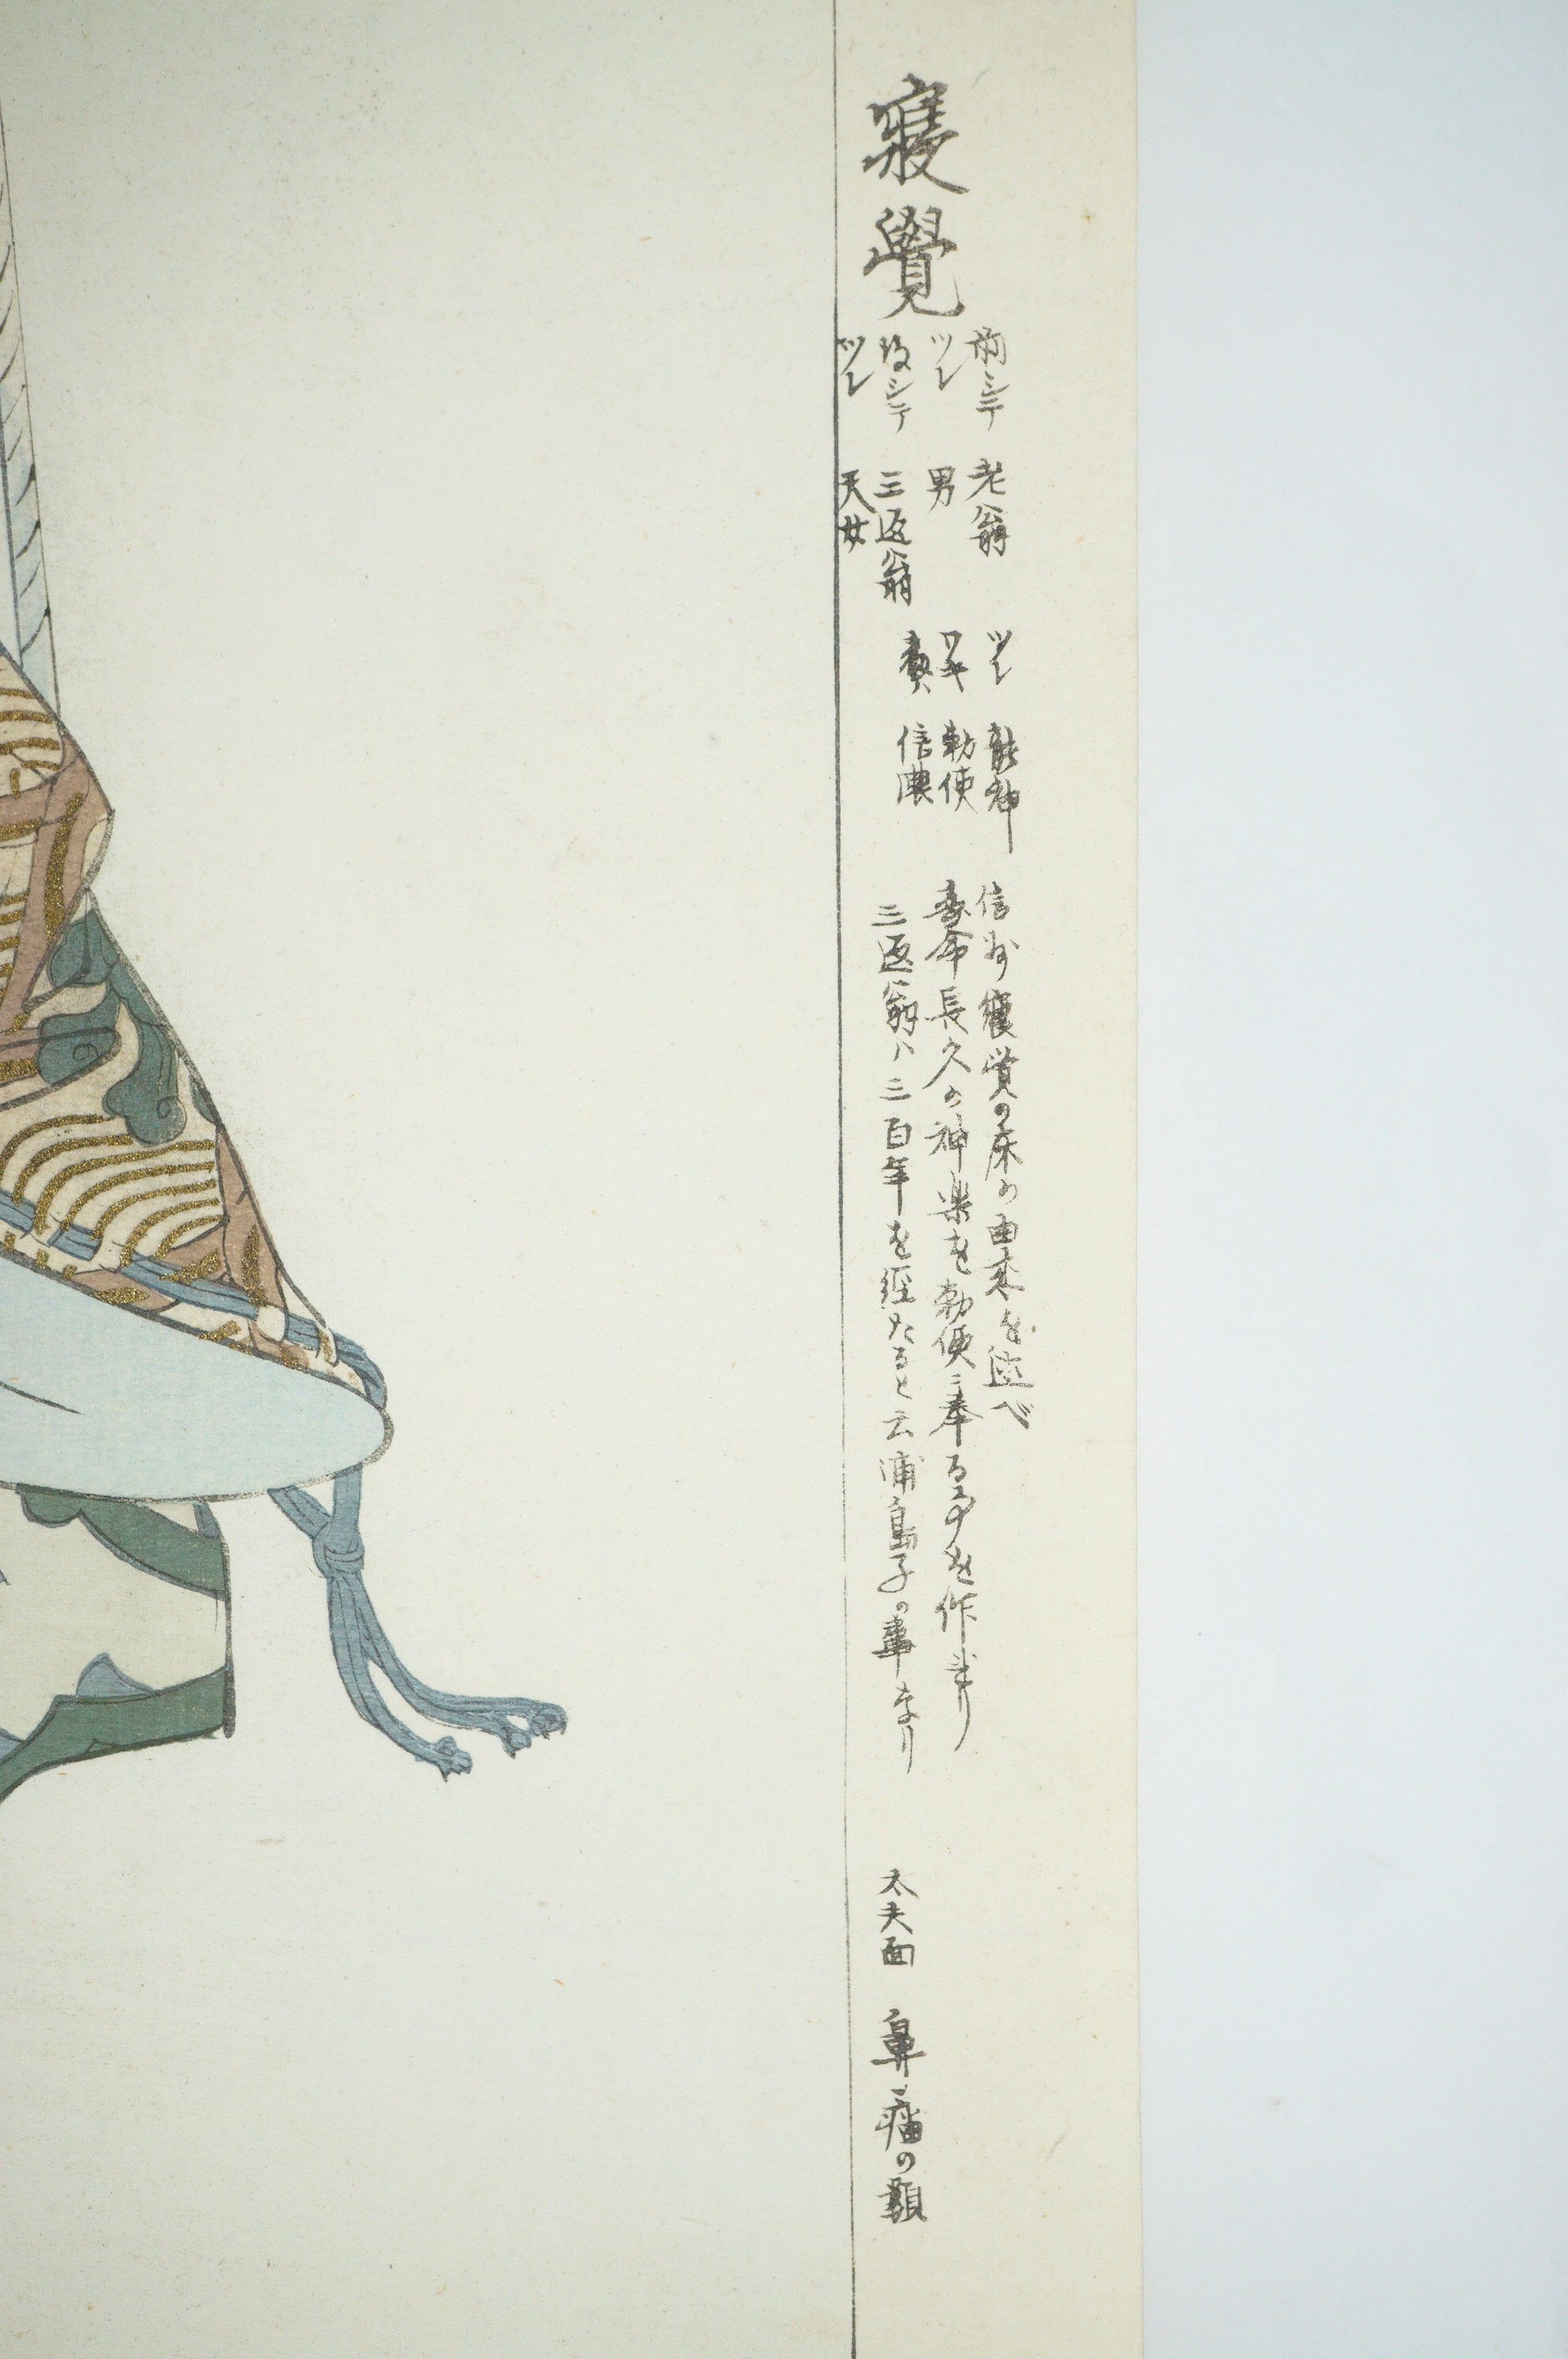 寝覺
前シテ 老翁
ツレ 男
後シテ 三返翁
ツレ 天女
ツレ 龍神
ワキ 勅使
處 信濃
信州寝覚の床の由来を述べ
壽命長久の神楽を勅使ニ奉る事を作れり
三返翁ハ三百年を経たると云浦島子の事なり
太夫面 鼻ニ瘤の類